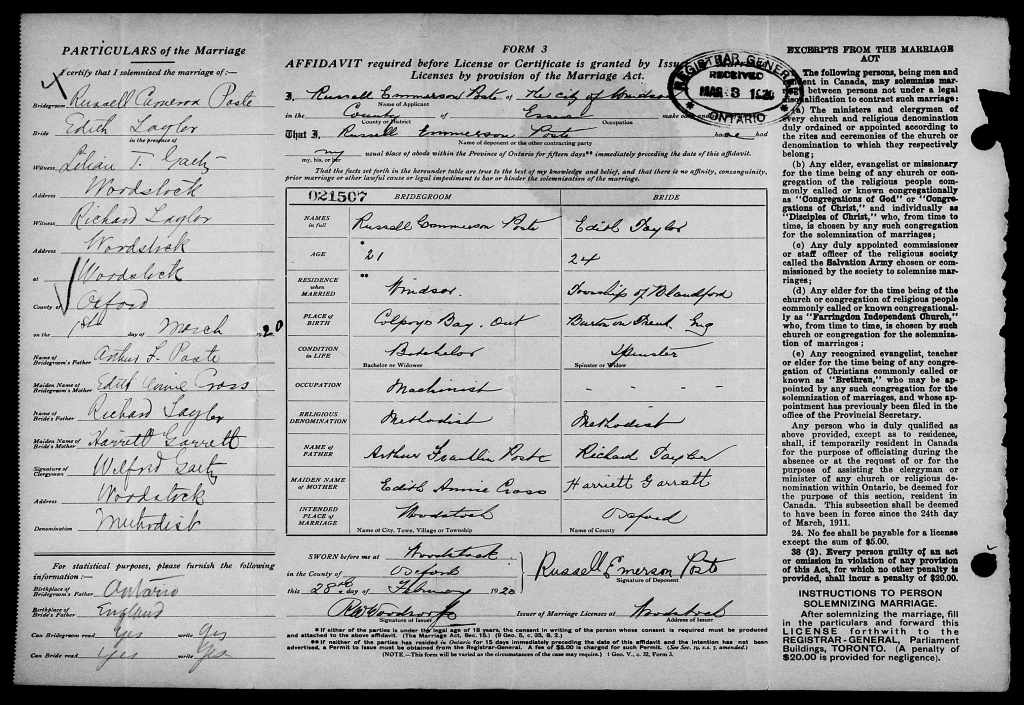 PARTICULARS of the Marriage
4
I certify that I solemnised the marriage of:—
Bridegroom Russell Cameron Poste
Bride Edith Taylor
in the presence of
Witness, Lilian T. Gaetz
Address Woodstock
Witness, Richard Taylor
Address Woodstock
at Woodstock
County of Oxford
on the 1st day of March 1920
Name of Bridegroom's Father Arthur F. Poste
Maiden Name of Bridegroom's Mother Edith Annie Cross
Name of Bride's Father Richard Taylor
Maiden Name of Bride's Mother Harriett Garratt
Signature of Clergyman Wilfred Gaetz
Address Woodstock
Denomination Methodist
For statistical purposes, please furnish the following
information:—
Birthplace of Bridegroom's Father Ontario
Birthplace of Bride's Father England
Can Bridegroom read Yes write Yes
Can Bride read Yes write Yes
FORM 3
AFFIDAVIT required before License or Certificate is granted by
Licenses by provision of the Marriage Act.
REGISTRAR GENERAL
RECEIVED
MAR 8 1920
ONTARIO
I, Russell Emmerson Poste of the city of Windsor
Name of Applicant
County of Essex make oath and
County or District Occupation
That I, Russell Emmerson Poste had
Name of deponent or the other contracting party
my usual place of abode within the Province of Ontario for fifteen days** immediately preceding the date of this affidavit.
my, his, or her
That the facts set forth in the hereunder table are true to the best of my knowledge and belief, and that there is no affinity, consanguinity,
prior marriage or other lawful cause or legal impediment to bar or hinder the solemnisation of the marriage.
021507 BRIDEGROOM BRIDE
NAMES in full Russell Emmerson Poste Edith Taylor
AGE * 21 24
RESIDENCE when MARRIED ** Windsor. Township of Blandford
PLACE OF BIRTH Colpoys Bay. Ont Burton on Trent Eng
CONDITION in LIFE Batchelor Spinster
Bachelor or Widower Spinster or Widow
OCCUPATION Machinist - - -
RELIGIOUS DENOMINATION Methodist Methodist
NAME OF FATHER Arthur Franklin Poste Richard Taylor
MAIDEN NAME OF MOTHER Edith Annie Cross Harriett Garratt
INTENDED PLACE OF MARRIAGE Woodstock Oxford
Name of City, Town, Village or Township Name of County
SWORN before me at Woodstock
in the County of Oxford
this 28th day of February 1920
Russell Emerson Poste
Signature of Deponent
Signature of Issuer
Issuer of Marriage Licenses at Woodstock
Address of Issuer
* If either of the parties is under the legal age of 18 years, the consent in writing of the person whose consent is required must be produced
and attached to the above affidavit. (The Marriage Act, Sec. 15.) (9 Geo. 5, c. 35, s. 2.)
** If neither of the parties has resided in Ontario for 15 days immediately preceding the date of this affidavit and the intention has not been
advertised, a Permit to Issue must be obtained from the Registrar-General. A fee of $5.00 is charged for such Permit. (See Sec. 19, s.s. 7, amended.)
(NOTE.—This form will be varied as the circumstances of the case may require.) 1 Geo. V., c. 32, Form 3.
EXCERPTS FROM THE MARRIAGE
ACT
The following persons, being men and
resident in Canada, may solemnize mar-
riage between persons not under a legal
disqualification to contract such marriage:
(a) The ministers and clergymen of
every church and religious denomination
duly ordained or appointed according to
the rites and ceremonies of the church or
denomination to which they respectively
belong;
(b) Any elder, evangelist or missionary
for the time being of any church or con-
gregation of the religious people com-
monly called or known congregationally
as "Congregations of God" or "Congre-
gations of Christ," and individually as
"Disciples of Christ," who, from time to
time, is chosen by any such congregation
for the solemnization of marriages;
(c) Any duly appointed commissioner
or staff officer of the religious society
called the Salvation Army chosen or com-
missioned by the society to solemnize mar-
riages;
(d) Any elder for the time being of the
church or congregation of religious people
commonly called or known congregational-
ly as "Farringdon Independent Church,"
who, from time to time, is chosen by such
church or congregation for the solemniza-
tion of marriages;
(e) Any recognized evangelist, teacher
or elder for the time being of any con-
gregation of Christians commonly called or
known as "Brethren," who may be ap-
pointed by any such congregation for the
solemnization of marriages, and whose ap-
pointment has previously been filed in the
office of the Provincial Secretary.
Any person who is duly qualified as
above provided, except as to residence,
shall, if temporarily resident in Canada
for the purpose of officiating during the
absence or at the request of or for the
purpose of assisting the clergyman or
minister of any church or religious de-
nomination within Ontario, be deemed for
the purpose of this section, resident in
Canada. This subsection shall be deemed
to have been in force since the 24th day
of March, 1911.
24. No fee shall be payable for a license
except the sum of $5.00.
38 (2). Every person guilty of an act
or omission in violation of any provision
of this Act, for which no other penalty is
provided, shall incur a penalty of $20.00.
INSTRUCTIONS TO PERSON
SOLEMNIZING MARRIAGE.
After solemnizing the marriage, fill
in the particulars and forward this
LICENSE forthwith to the
REGISTRAR-GENERAL, Parliament
Buildings, TORONTO. (A penalty of
$20.00 is provided for negligence).